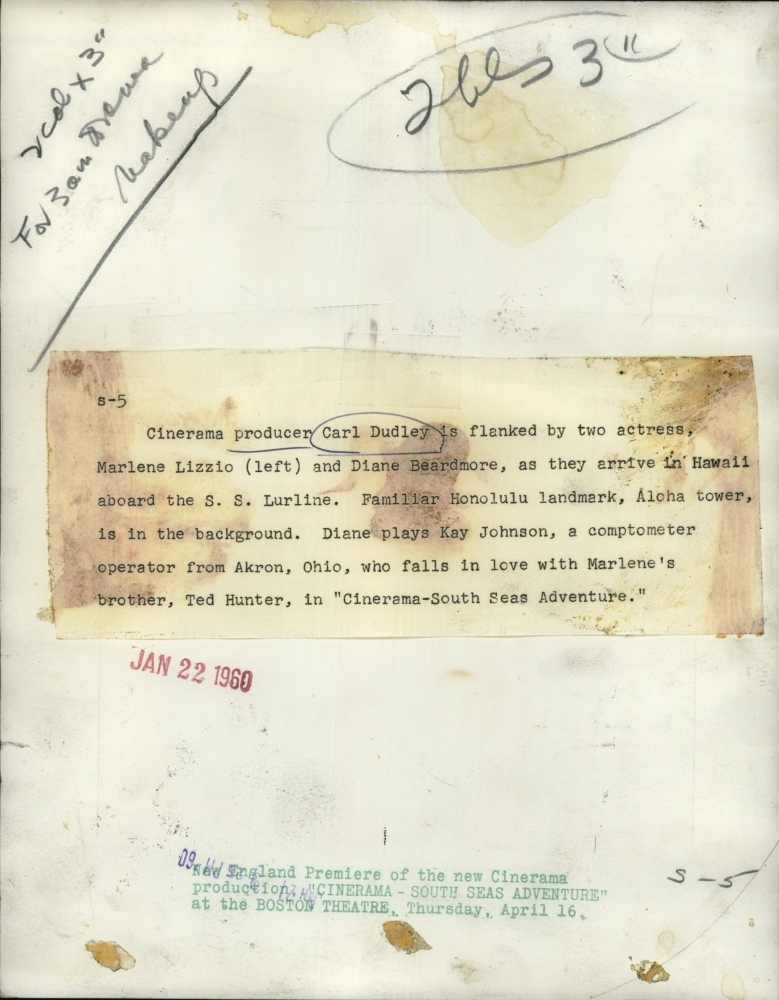 2 col x 3"
For 3am Drama
Makeup
2 cols 3"
s-5
Cinerama producer Carl Dudley is flanked by two actress,
Marlene Lizzio (left) and Diane Beardmore, as they arrive in Hawaii
aboard the S. S. Lurline. Familiar Honolulu landmark, Aloha tower,
is in the background. Diane plays Kay Johnson, a comptometer
operator from Akron, Ohio, who falls in love with Marlene's
brother, Ted Hunter, in "Cinerama-South Seas Adventure."
JAN 22 1960
New England Premiere of the new Cinerama
production, "CINERAMA - SOUTH SEAS ADVENTURE"
at the BOSTON THEATRE, Thursday, April 16.
S-5